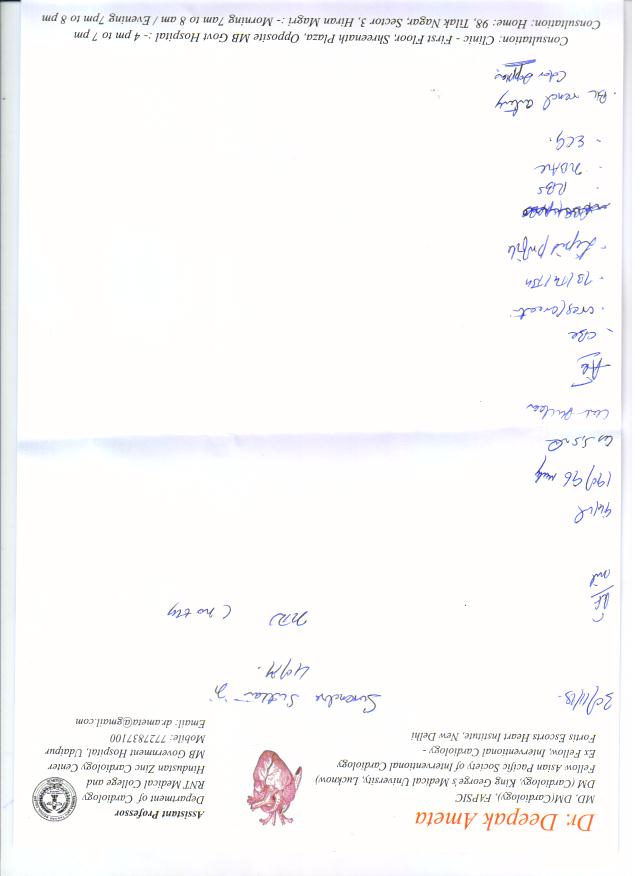 Dr. Deepak Ameta
MD, DM(Cardiology), FAPSIC
DM (Cardiology, King George's Medical University, Lucknow)
Fellow Asian Pacific Society of Interventional Cardiology
Ex Fellow, Interventional Cardiology -
Fortis Escorts Heart Institute, New Delhi
Assistant Professor
Department of Cardiology
RNT Medical College and
Hindustan Zinc Cardiology Center
MB Government Hospital, Udaipur
Mobile: 7727837100
Email: dr.ameta@gmail.com
30/11/18.
Surendra
40/M.
RF
190/96
Chest - Clear
Adv
- CBC
- Urea/Creati
- T3/T4/TSH
- Lipid profile
- RBS
- HbA1c
- ECG.
- renal artery
Color Doppler
Consultation: Clinic - First Floor, Shreenath, Plaza, Opposite MB Govt Hospital :- 4 pm to 7 pm
Consultation: Home: 98, Tilak Nagar, Sector 3, Hiran Magri :- Morning 7am to 8 am / Evening 7pm to 8 pm